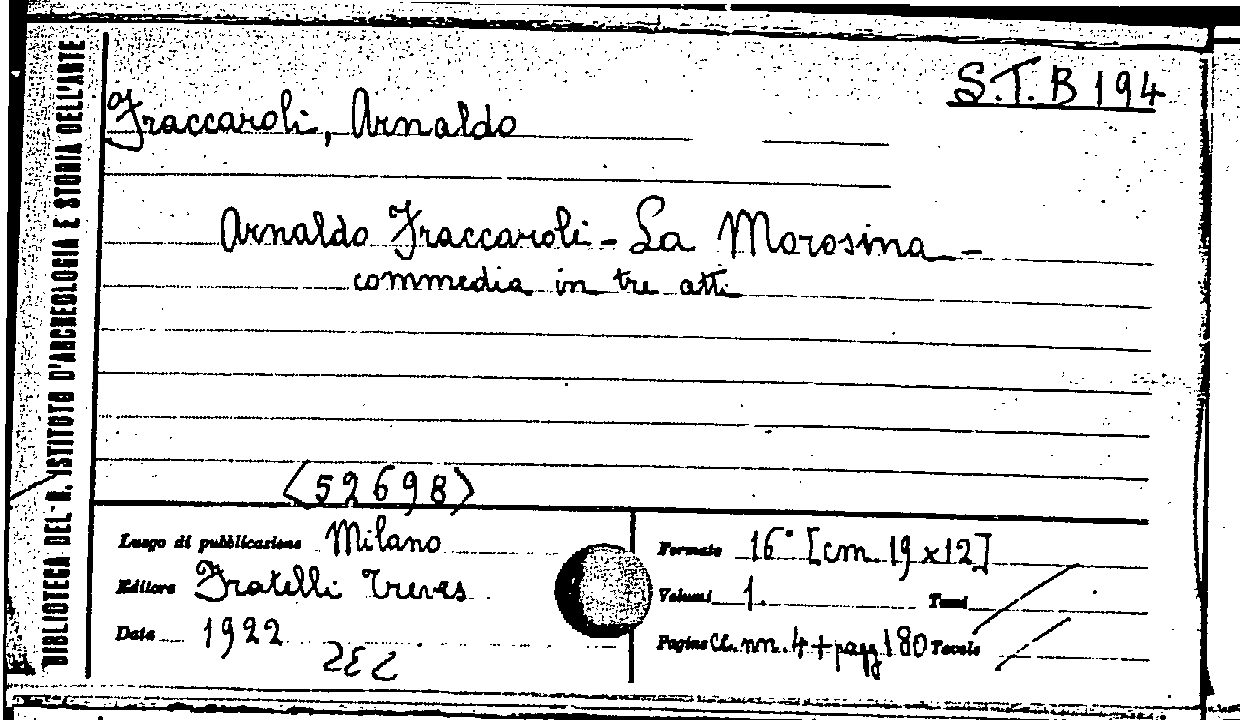 BIBLIOTECA DEL R. ISTITUTO D'ARCHEOLOGIA E STORIA DELL'ARTE
S.T.B 194
Fraccaroli, Arnaldo
Arnaldo Fraccaroli - La Morosina -
commedia in tre atti
<52698>
Luogo di pubblicazione Milano
Editore Fratelli Treves
Data 1922
Formato 16° [cm 19x12]
Volumi 1. Tomi
Pagine cc. nn. 4 + pagg 180 Tavole